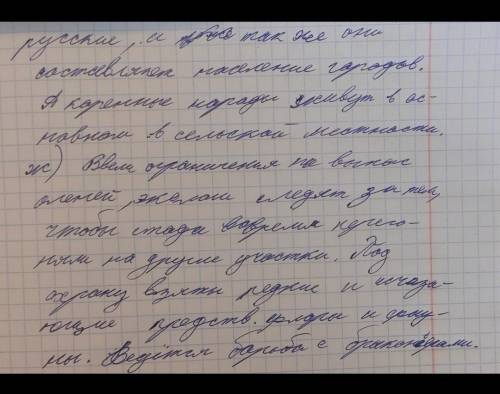 русские, и так же они
составляют население городов.
А коренные народы живут в ос-
новном в сельской местности.
ж) Ввели ограничения на выпас
оленей, экологи следят за тем,
чтобы стада вовремя перего-
няли на другие участки. Под
охрану взяты редкие и исчеза-
ющие предств. флоры и фау-
ны. Ведётся борьба с браконьерами.